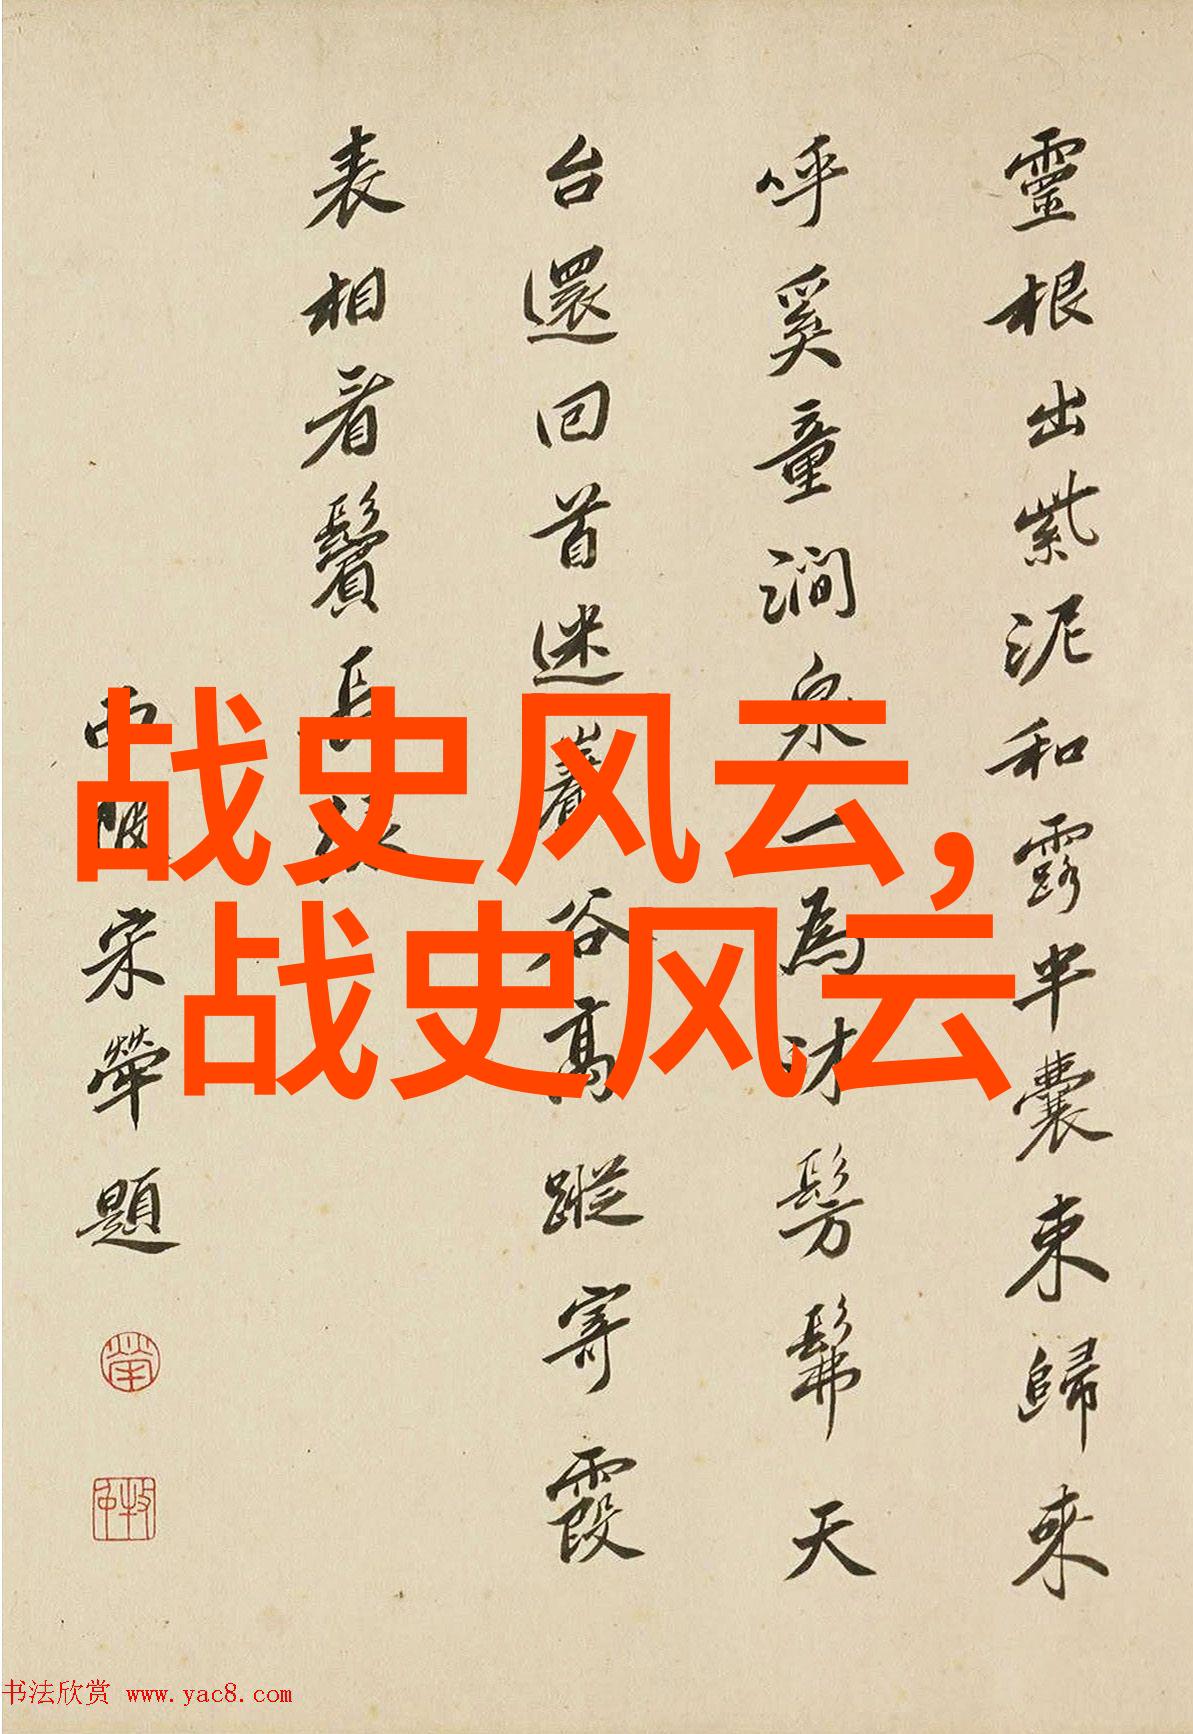 靈根出紫泥和露半囊束歸来
呼奚童澗泉一為髣髴天
台還回首迷巖谷高蹤寄霞
表相看鬢長綠
西陂宋犖題
犖
牧仲
战史风云,
战史风云
书法欣赏 www.yac8.com